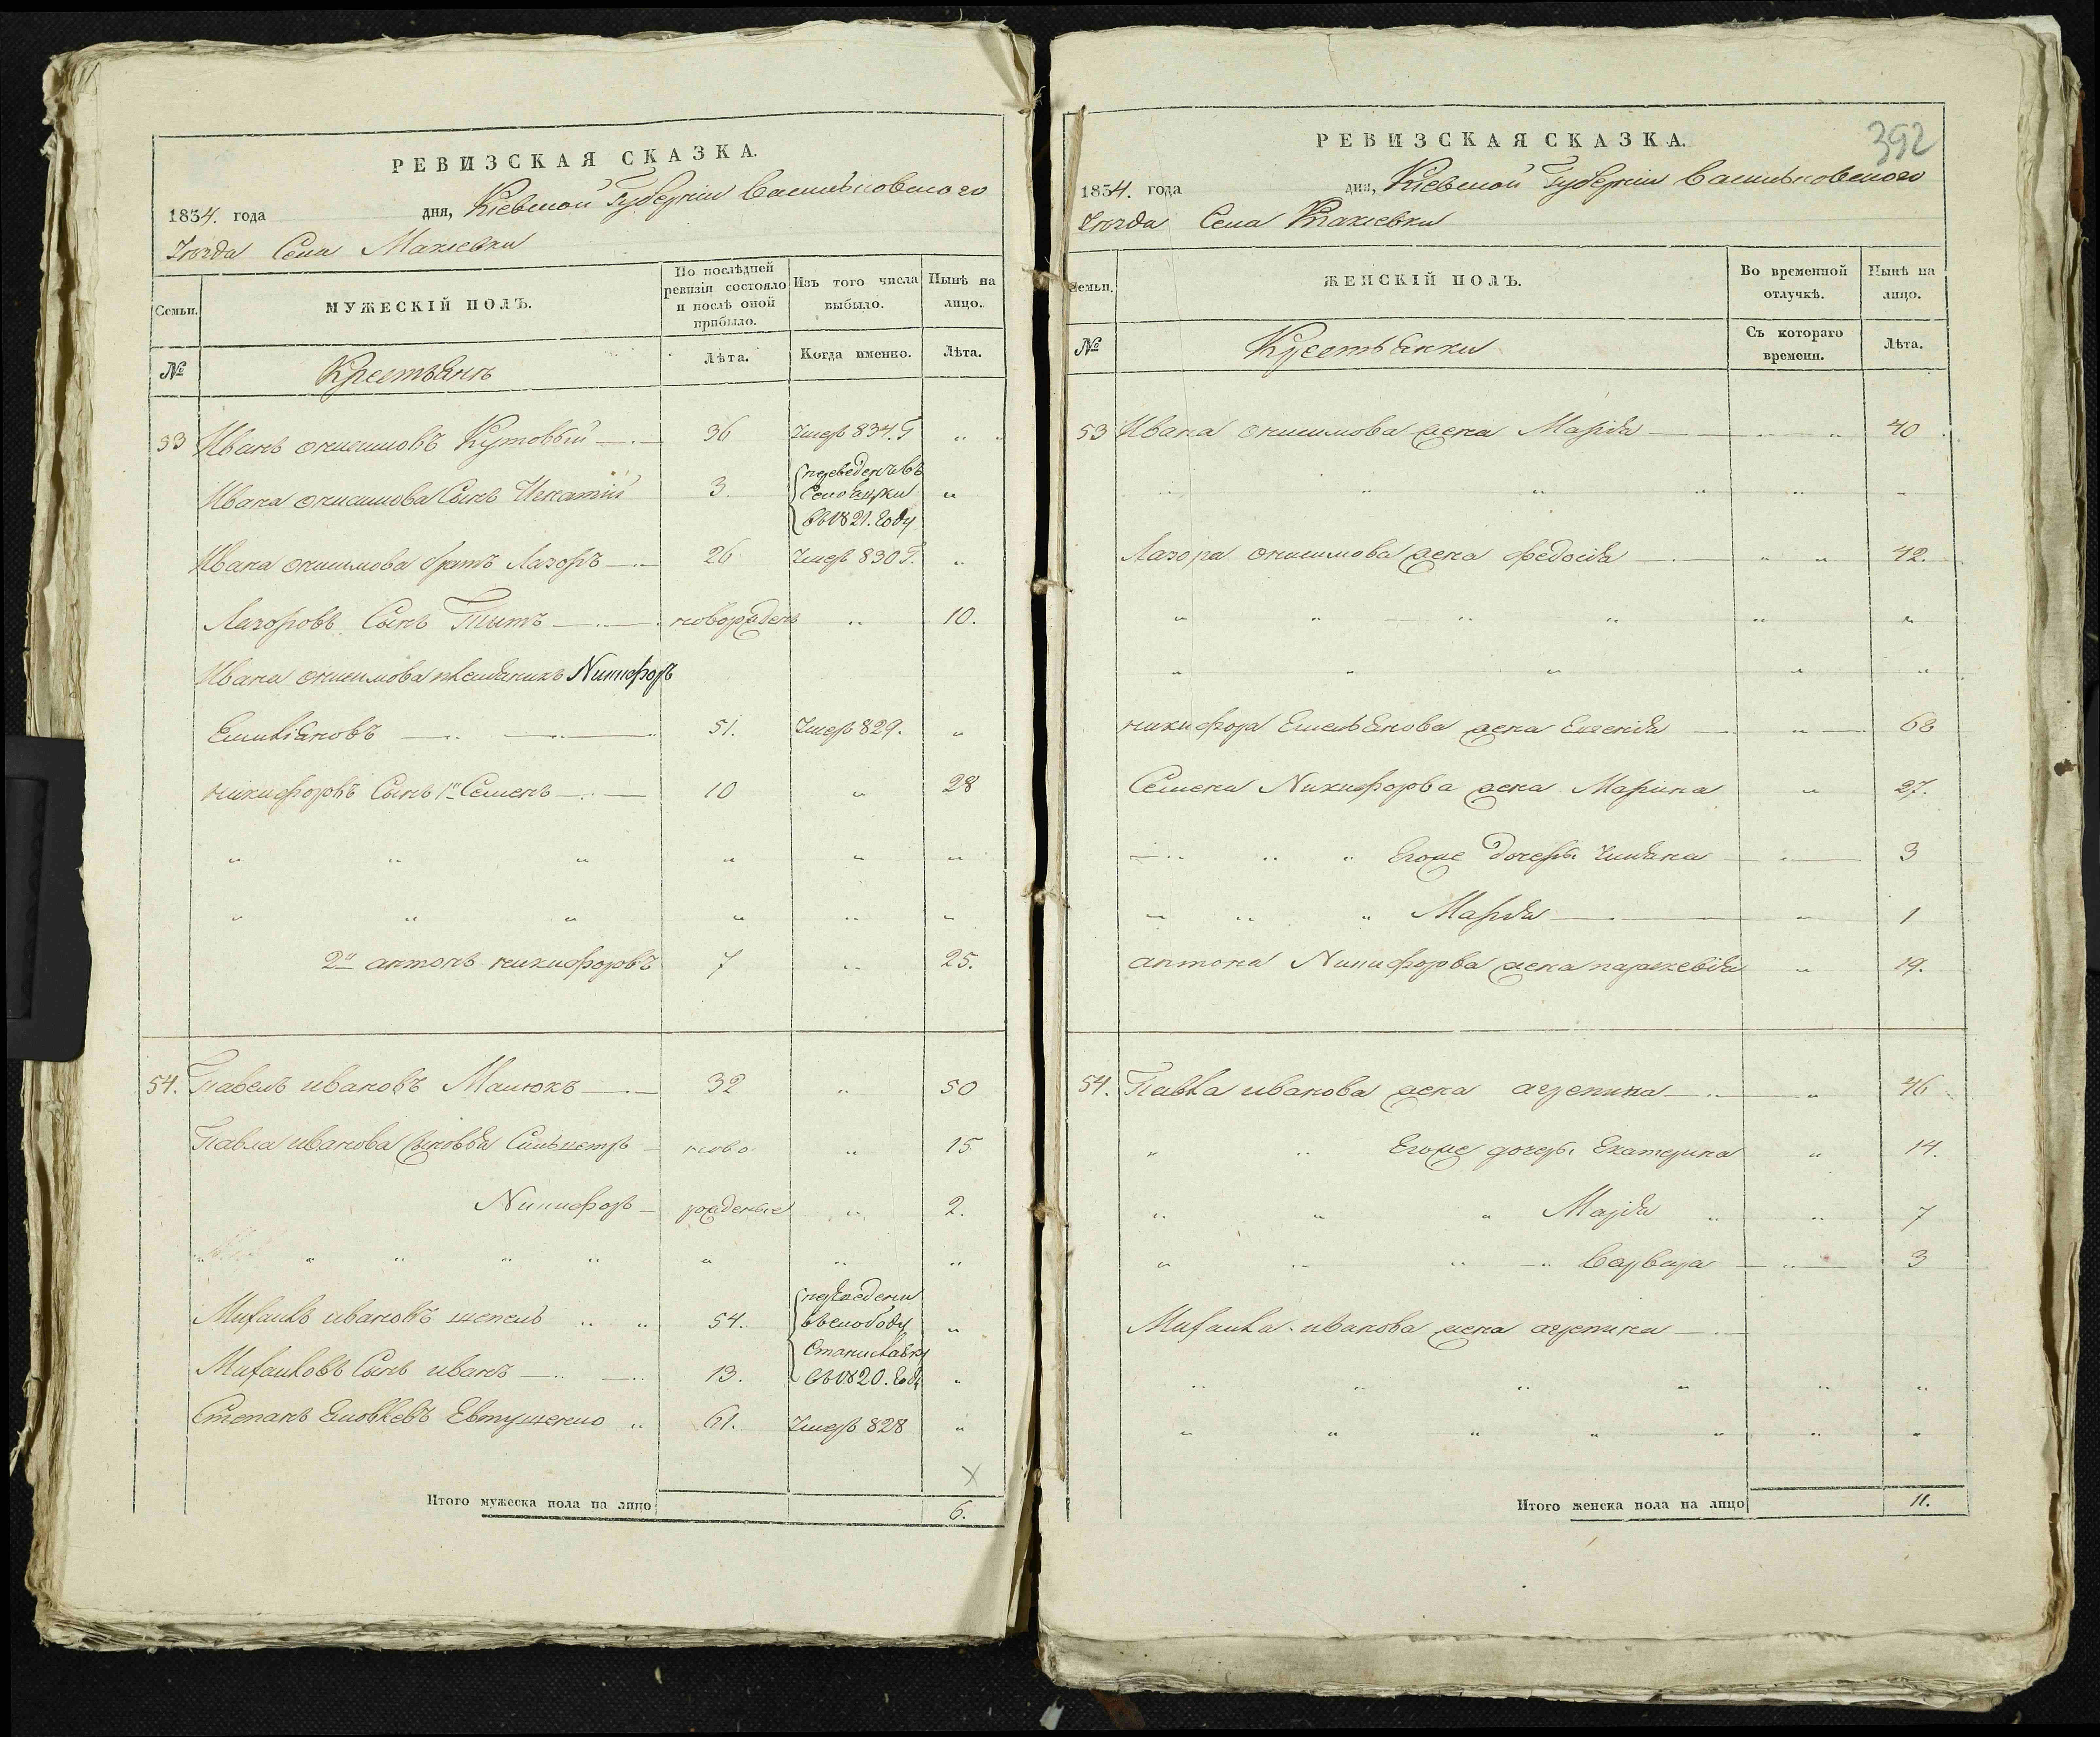 РЕВИЗСКАЯ СКАЗКА.
1834. года дня, Кіевской Губерніи Васильковскаго
Уѣзда Села Макіевки
Семьи. МУЖЕСКІЙ ПОЛЪ. По послѣдней ревизіи состояло и послѣ оной прибыло. Изъ того числа выбыло. Нынѣ на лицо.
№ Крестьянѣ Лѣта. Когда именно. Лѣта.
53 Иванъ онисимовъ Кутовый 36 Умеръ 834. Г „ „
Ивана онисимова Сынъ Игнатій 3. переведенъ въ Село
въ 1821. Году „
Ивана онисимова братъ Лазоръ 26 Умеръ 830 Г. „
Лазоровъ Сынъ Тытъ новорожденъ „ 10.
Ивана онисимова племяникъ Никифоръ
Емильяновъ 51. Умеръ 829. „
никифоровъ Сынъ 1й Семенъ 10 „ 28
„ „ „ „ „ „
„ „ „ „ „ „
2й антонъ никифоровъ 7 „ 25.
54. Павелъ ивановъ Малюкъ 32 „ 50
Павла иванова Сыновья петръ ново „ 15
Никифоръ рожденые „ 2.
„ „ „ „ „ „ „ „
Михаилъ ивановъ шепель „ „ 54. переведени
въ слободу „
Михаиловъ Сынъ иванъ 13. Станиславку
въ 1820. Году „
Степанъ Яковлевъ Евтушенко „ 61. Умеръ 828 „
X
Итого мужеска пола на лицо 6.
392
РЕВИЗСКАЯ СКАЗКА.
1834. года дня, Кіевской Губерніи Васильковскаго
Уѣзда Села Макіевки
Семьи. ЖЕНСКІЙ ПОЛЪ. Во временной отлучкѣ. Нынѣ на лицо.
№ Крестьянки Съ котораго времени. Лѣта.
53 Ивана онисимова жена Марія „ „ 40
„ „ „ „ „ „
Лазора онисимова жена федосія „ „ 42.
„ „ „ „ „ „
„ „ „ „ „
никифора Емельянова жена Евгенія „ 68
Семена Никифорова жена Марина „ 27.
„ „ „ Егоже дочеры Улияна „ 3
„ „ „ Марія „ 1
антона Никифорова жена паракевія „ 19.
54. Павла иванова жена агрепина „ 46
„ „ Егоже дочеры Екатерина „ 14.
„ „ „ Марія „ „ 7
„ „ „ „ варвара „ 3
Михаила иванова жена агрепина
„ „ „ „ „ „
„ „ „ „ „ „ „
Итого женска пола на лицо 11.